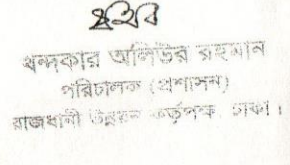 খন্দকার অলিউর রহমান
পরিচালক (প্রশাসন)
রাজধানী উন্নয়ন কর্তৃপক্ষ, ঢাকা।